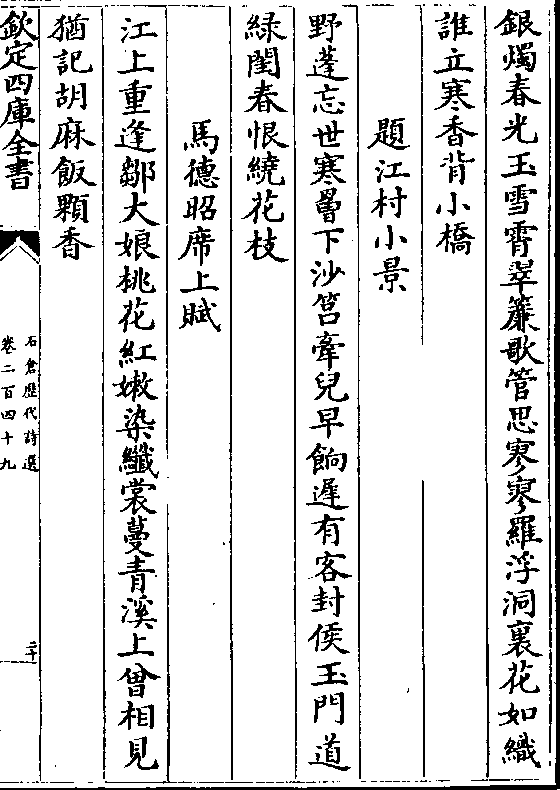 銀燭春光玉雪霄翠簾歌管思寥寥羅浮洞裏花如織
誰立寒香背小橋
題江村小景
野蓬忘世寒暈下沙筥牽兒早餉遲有客封侯玉門道
緑閨春恨繞花枝
馬德昭席上賦
江上重逢鄒大娘桃花紅嫩染纖裳蔓青溪上曾相見
猶記胡麻飯顆香
欽定四庫全書
石倉歷代詩選
卷二百四十九
二十